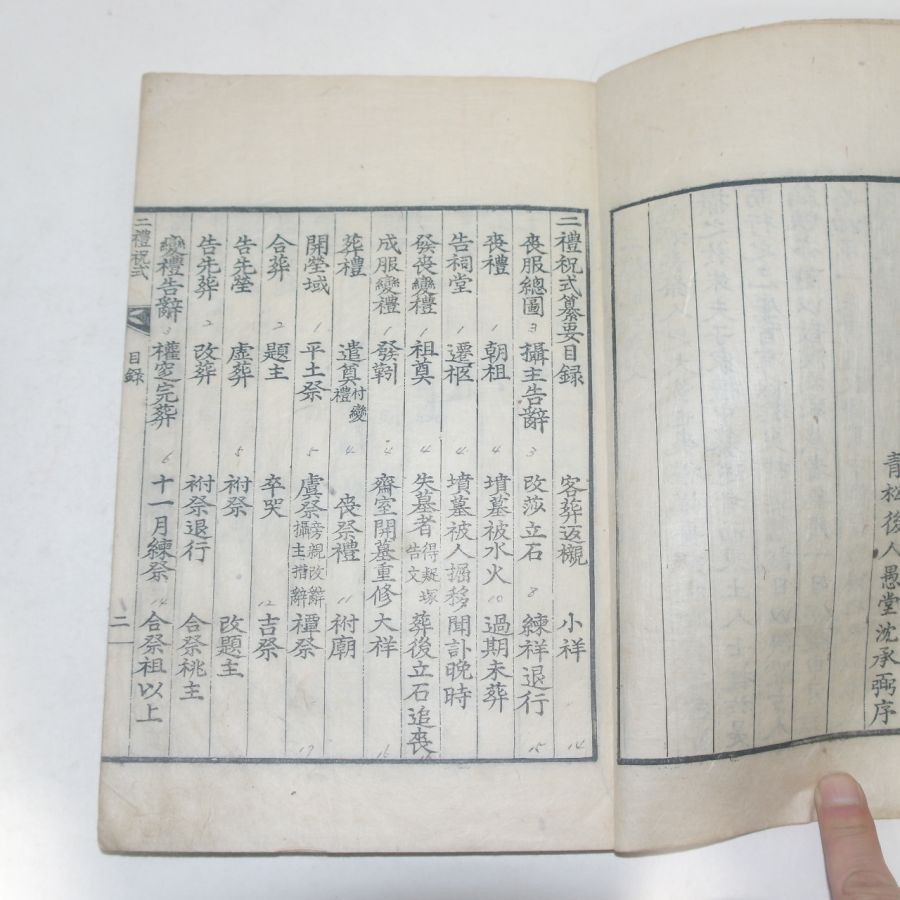 青松後人愚堂沈承弼序
二禮祝式纂要目錄 客葬返櫬 小祥 14
喪服總圖 3 攝主告辭 3 改莎立石 8 練祥退行 15
喪禮 1 朝祖 4 墳墓被水火 10 過期未葬
告祠堂 1 遷柩 4 墳墓被人掘移 聞訃晩時
發喪變禮 1 祖奠 4 失墓者 得疑塚告文 葬後立石追喪
成服變禮 1 發靷 4 齋室開墓重修 大祥 16
葬禮 遣奠 付變禮 4 喪祭禮 11 祔廟
開塋域 1 平土祭 5 虞祭 旁親改辭攝主措辭 禫祭 17
合葬 2 題主 卒哭 12 吉祭
告先塋 虛葬 5 祔祭 改題主
告先葬 2 改葬 祔祭退行 合祭祧主
變禮告辭 3 權窆完葬 6 十一月練祭 14 合祭祖以上
二禮祝式 目錄 二